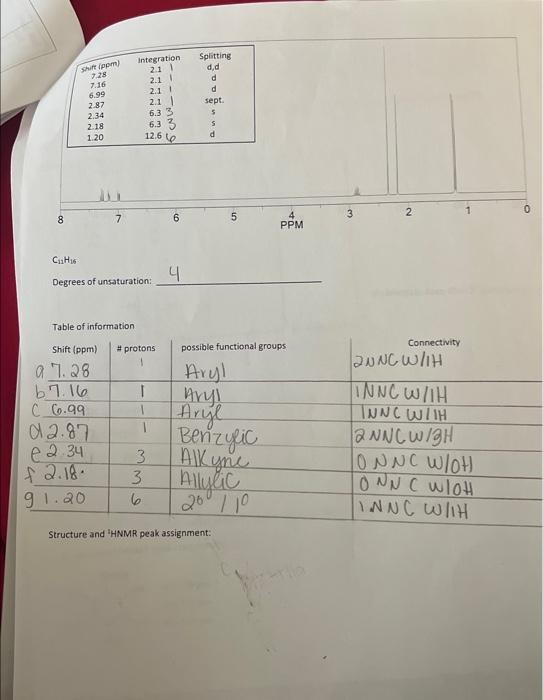 Shift (ppm) Integration Splitting
7.28 2.1 1 d,d
7.16 2.1 1 d
6.99 2.1 1 d
2.87 2.1 1 sept.
2.34 6.3 3 s
2.18 6.3 3 s
1.20 12.6 6 d
8 7 6 5 4 3 2 1 0
PPM
C₁₁H₁₆
Degrees of unsaturation: 4
Table of information
Shift (ppm) # protons possible functional groups Connectivity
a 7.28 1 Aryl 2 NNC W/1H
b 7.16 1 Aryl 1 NNC W/1H
C 6.99 1 Aryl 1 NNC W/1H
d 2.87 1 Benzylic 2 NNC W/3H
e 2.34 3 Alkyne 0 NNC W/0H
f 2.18 3 Allylic 0 NNC W/0H
g 1.20 6 2° / 1° 1 NNC W/1H
Structure and ¹HNMR peak assignment: